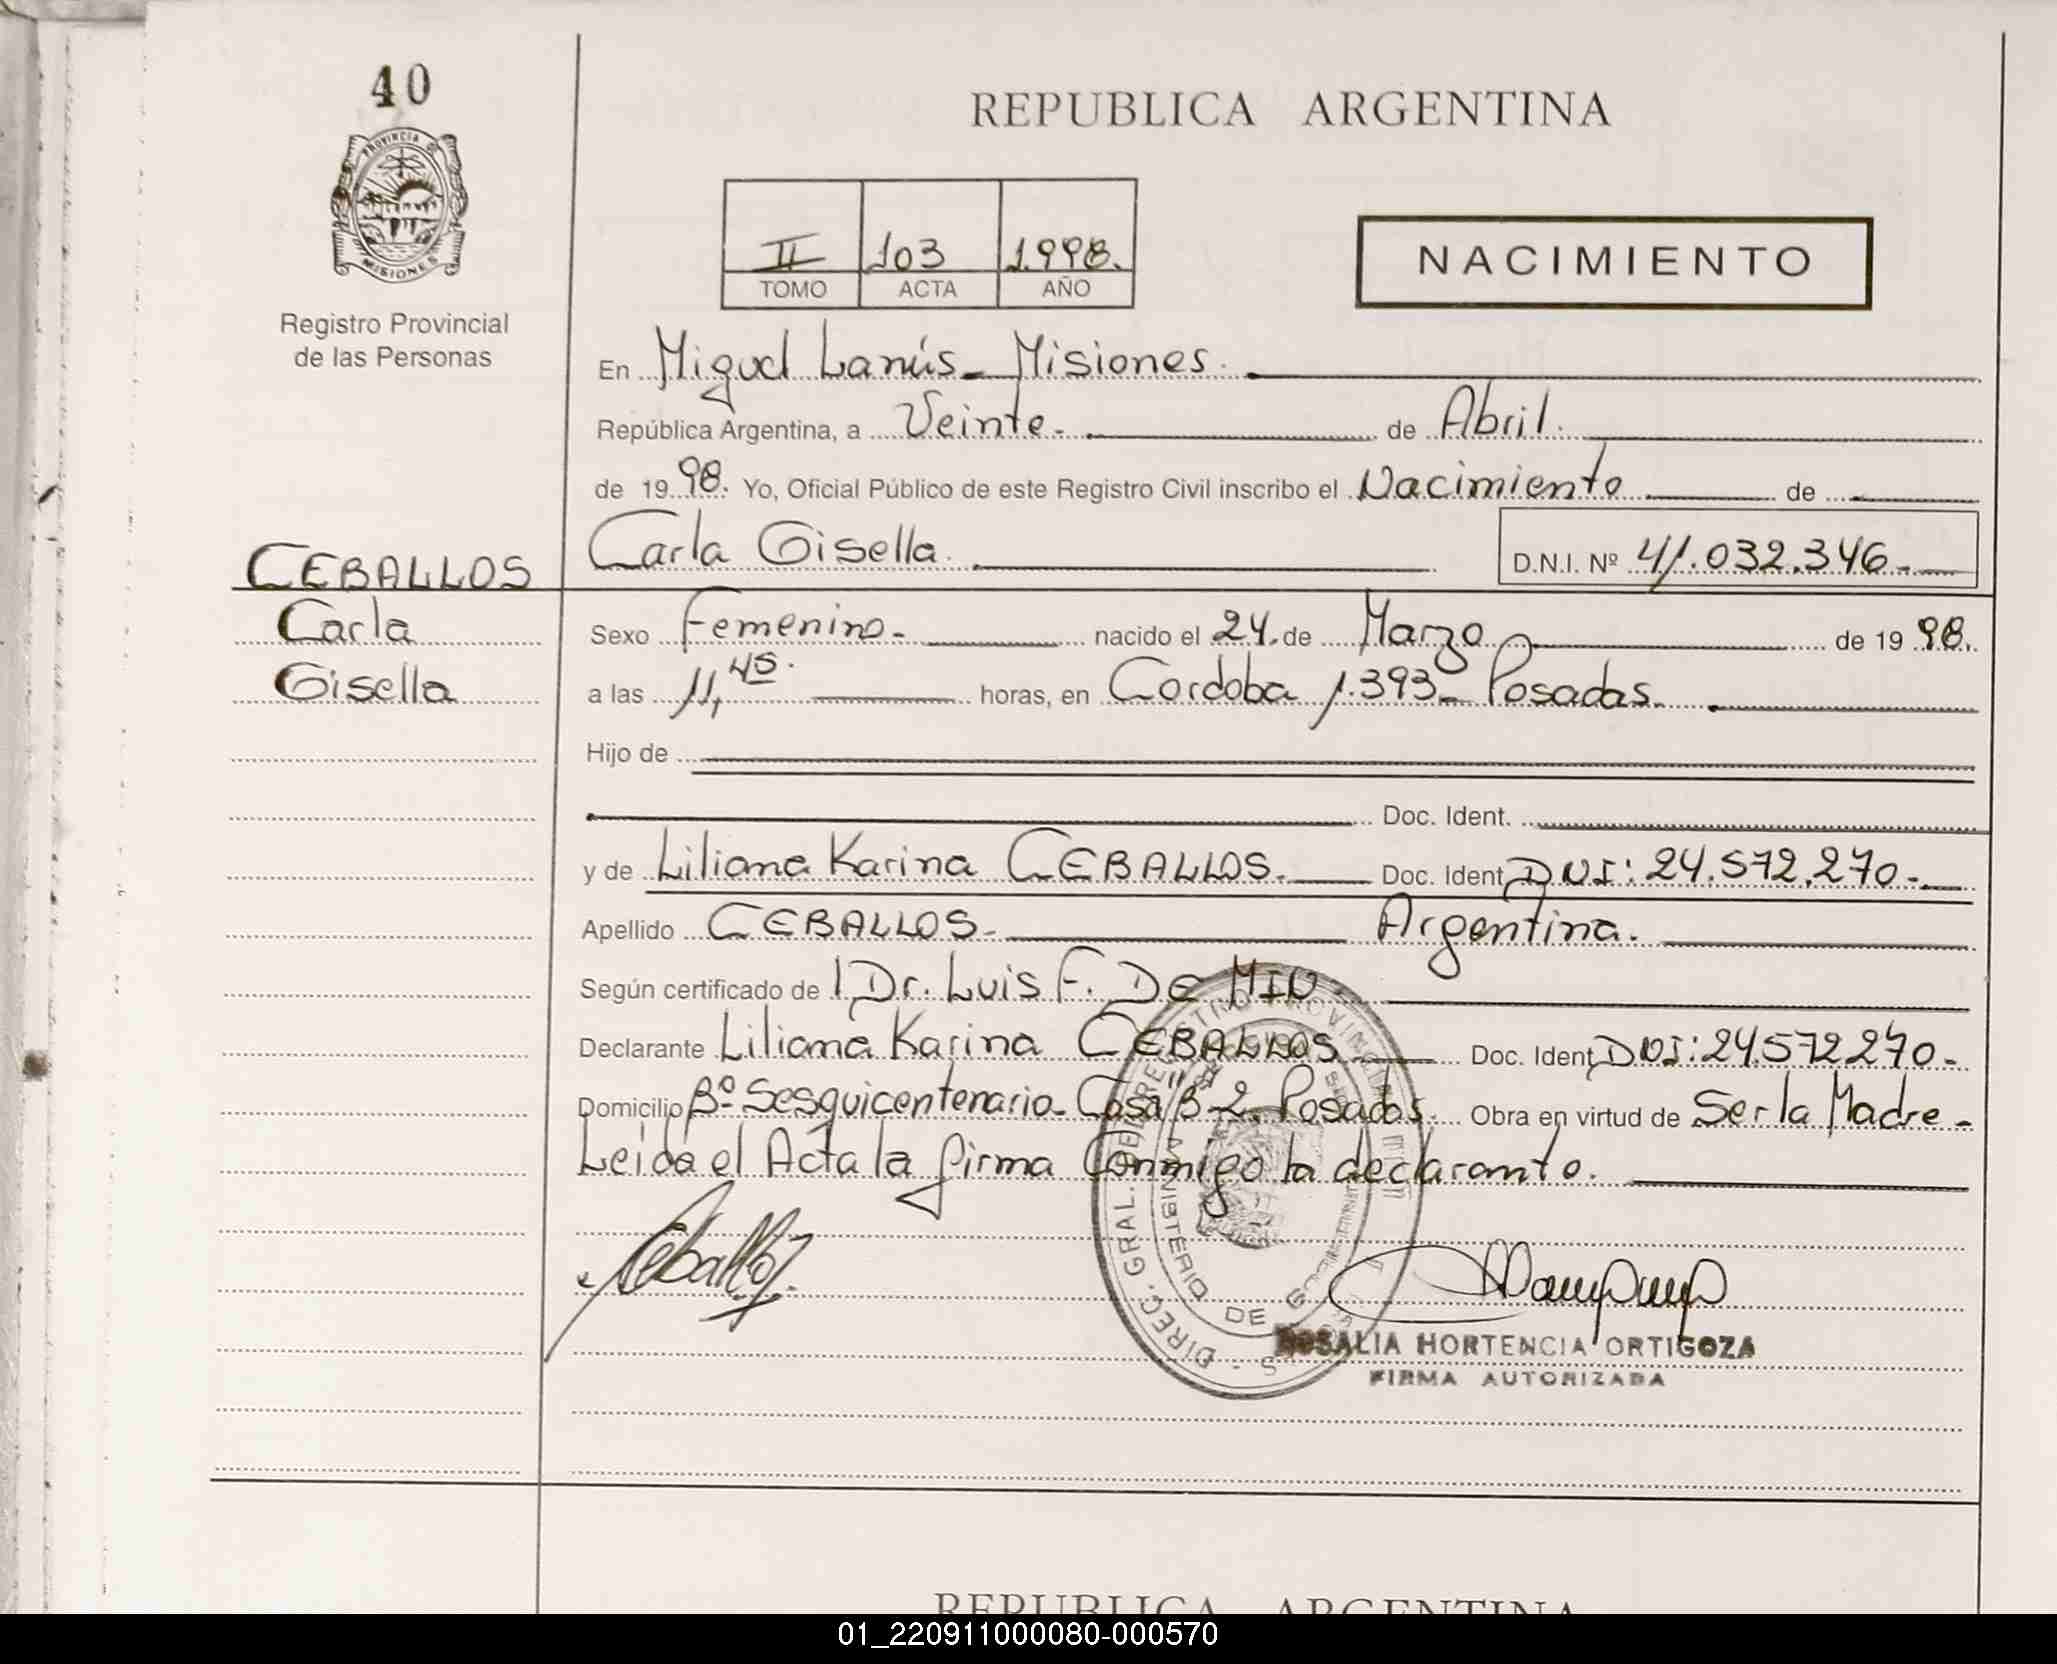 40
PROVINCIA DE
MISIONES
Registro Provincial
de las Personas
REPUBLICA ARGENTINA
II 103 1.998.
TOMO ACTA AÑO
NACIMIENTO
En Miguel Lanús - Misiones.
República Argentina, a Veinte - de Abril.
de 1998. Yo, Oficial Público de este Registro Civil inscribo el Nacimiento de
Carla Gisella. D.N.I. Nº 41.032.346.-
CEBALLOS
Carla
Gisella
Sexo Femenino.- nacido el 24. de Marzo de 1998.
a las 11,45. horas, en Cordoba 1.393 - Posadas.
Hijo de
Doc. Ident.
y de Liliana Karina CEBALLOS. Doc. Ident. DNI: 24.572.270.-
Apellido CEBALLOS - Argentina.
Según certificado de Dr. Luis F. DE MIN
Declarante Liliana Karina CEBALLOS Doc. Ident. DNI: 24.572270.-
Domicilio Bº Sesquicentenario - Casa "B-2. Posadas. Obra en virtud de Ser la Madre -
Leida el Acta la firma conmigo la declarante.
Ceballos
DIREC. GRAL. DEL REGISTRO PROVINCIAL
MINISTERIO DE GOBIERNO
ROSALIA HORTENCIA ORTIGOZA
FIRMA AUTORIZADA
REPUBLICA ARGENTINA
01_220911000080-000570